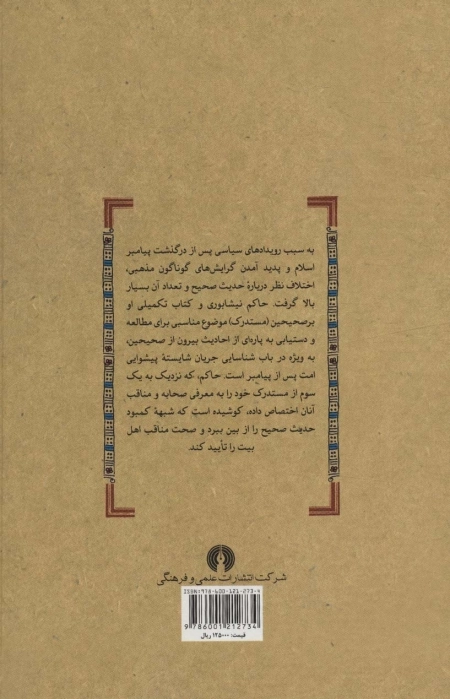 به سبب رویدادهای سیاسی پس از درگذشت پیامبر
اسلام و پدید آمدن گرایش‌های گوناگون مذهبی،
اختلاف نظر دربارهٔ حدیث صحیح و تعداد آن بسیار
بالا گرفت. حاکم نیشابوری و کتاب تکمیلی او
برصحیحین (مستدرک) موضوع مناسبی برای مطالعه
و دستیابی به پاره‌ای از احادیث بیرون از صحیحین،
به ویژه در باب شناسایی جریان شایستهٔ پیشوایی
امت پس از پیامبر است. حاکم، که نزدیک به یک
سوم از مستدرک خود را به معرفی صحابه و مناقب
آنان اختصاص داده، کوشیده است که شبههٔ کمبود
حدیث صحیح را از بین ببرد و صحت مناقب اهل
بیت را تأیید کند.
شرکت انتشارات علمی و فرهنگی
ISBN:978-600-121-273-4
9786001212734
قیمت: ۱۲۵۰۰۰ ریال